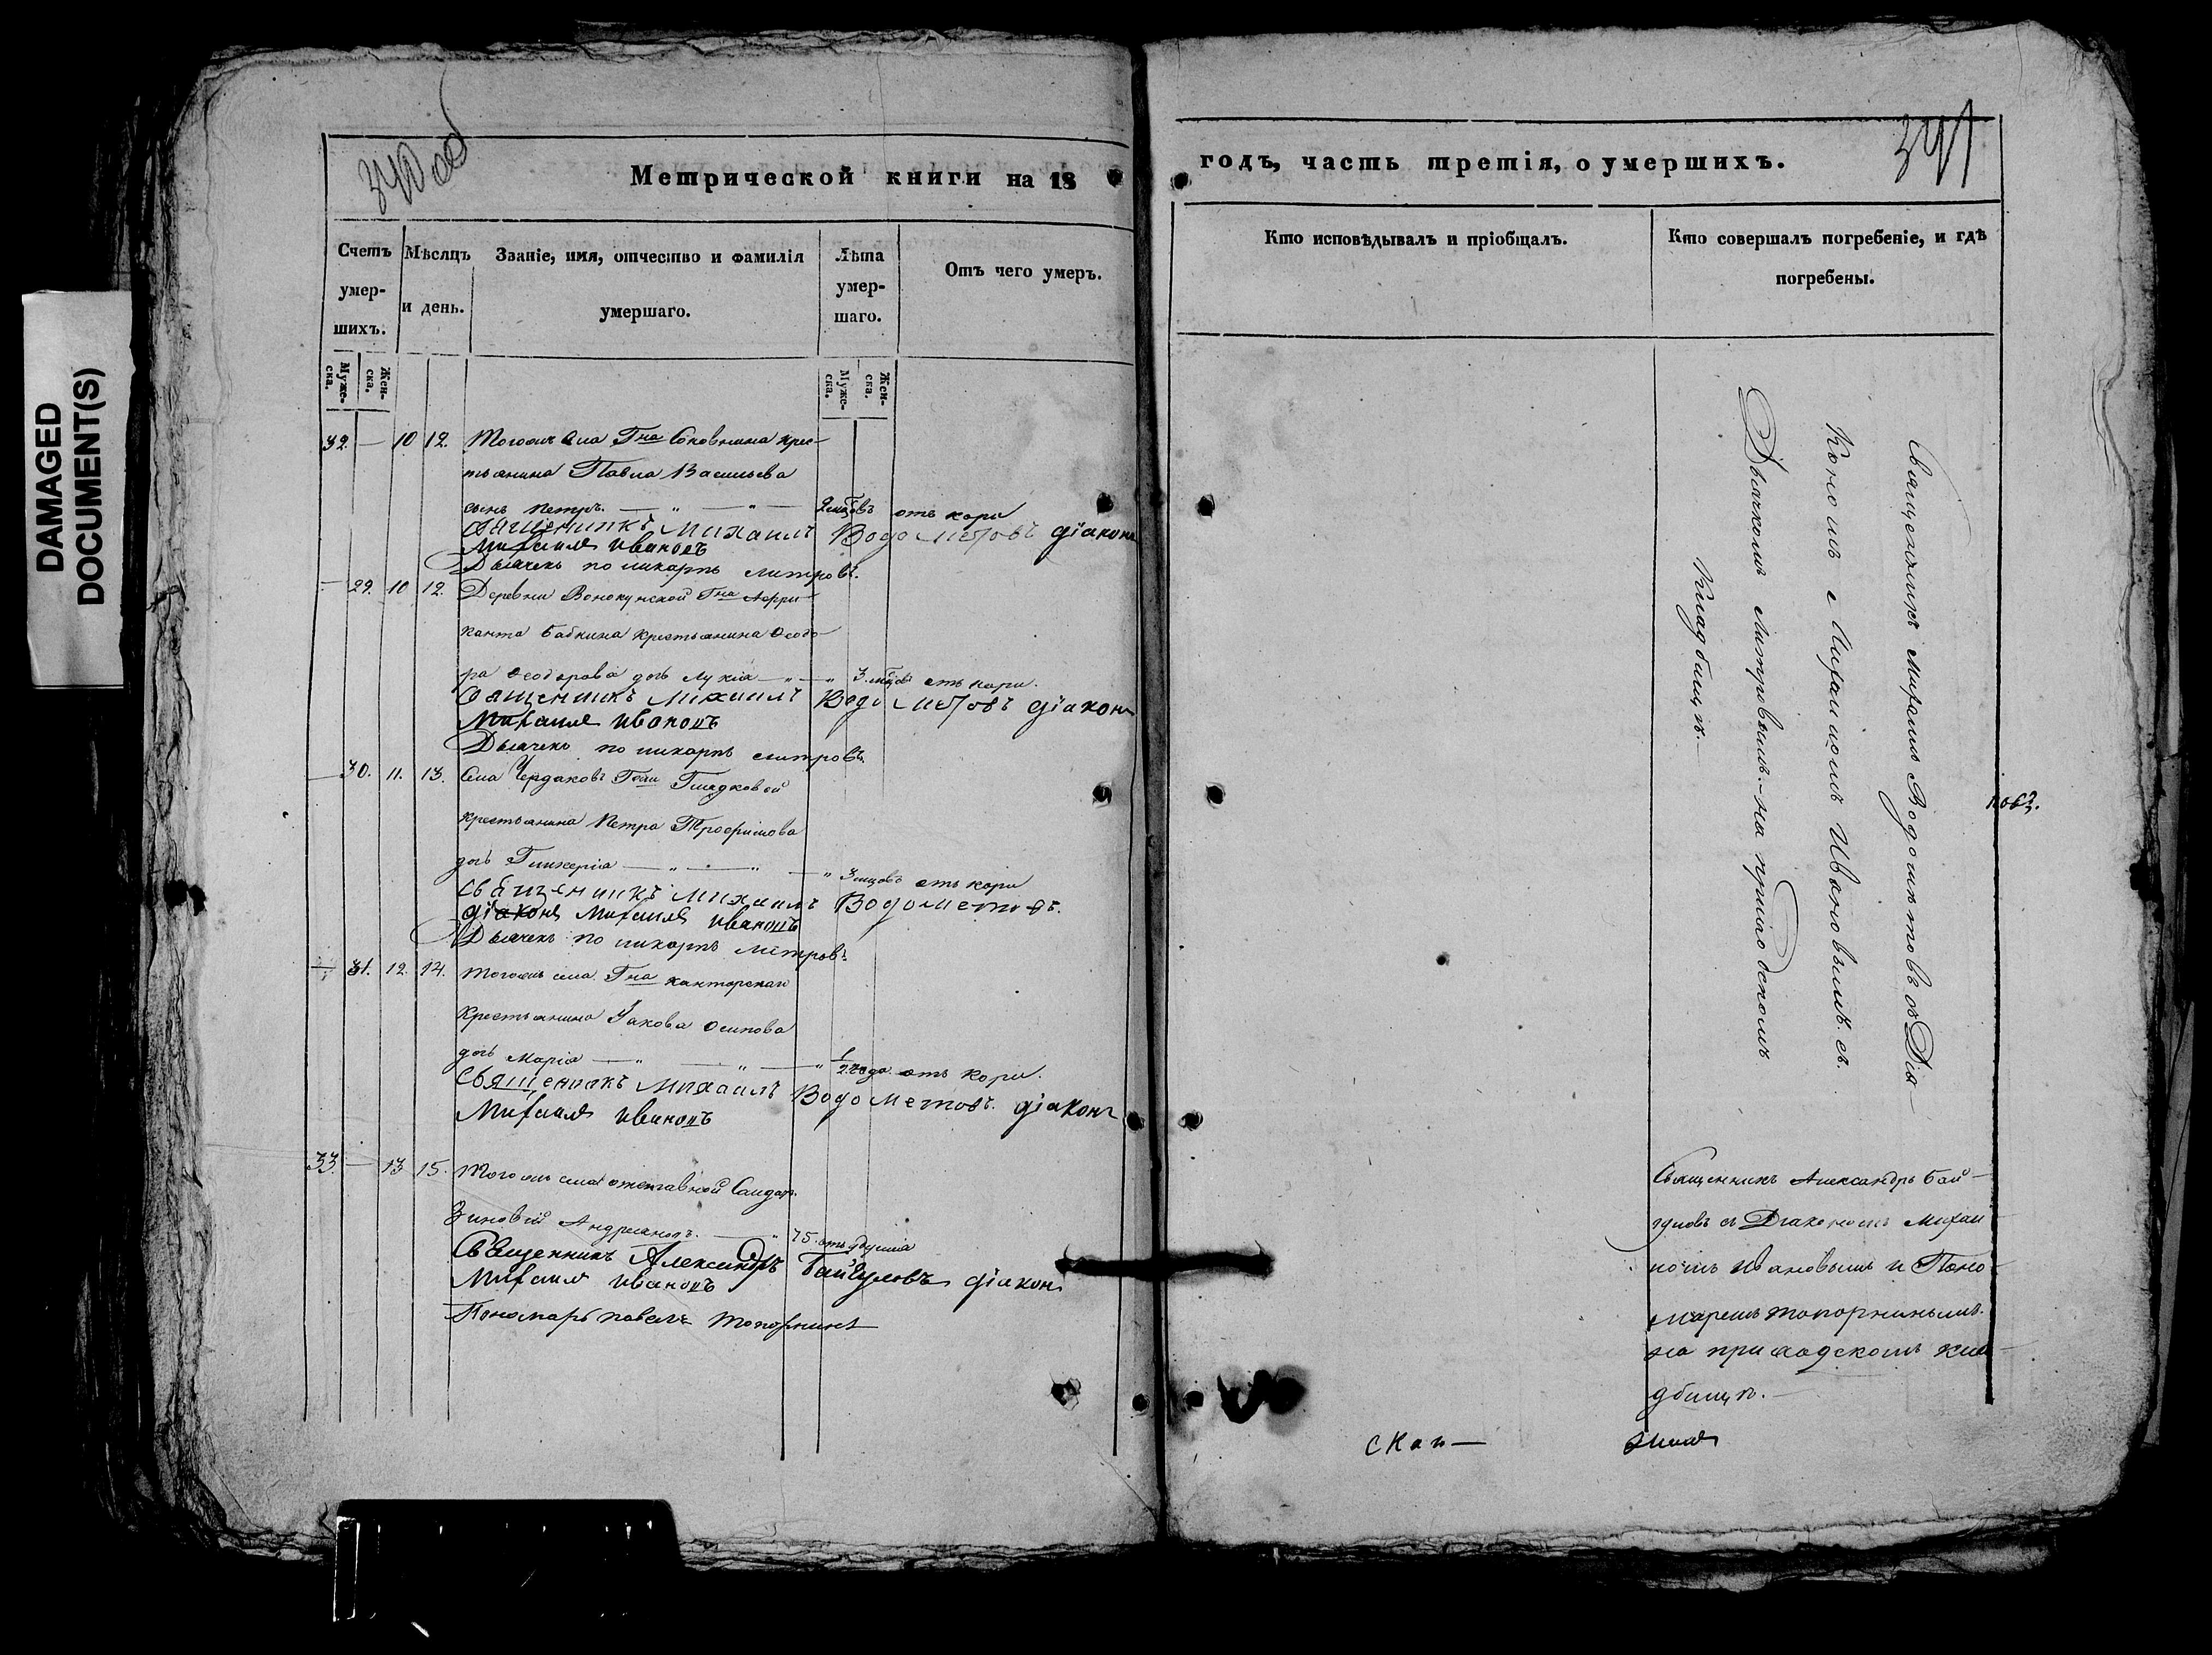 DAMAGED
DOCUMENT(S)
340 об
Метрической книги на 18
Счетъ умер-шихъ.
Мѣсяцъ и день.
Званіе, имя, отчество и фамилія умершаго.
Лѣта умер-шаго.
Отъ чего умеръ.
Муже-ска.
Жен-ска.
Муже-ска.
Жен-ска.
32 — 10 12. Тогожъ села Гна крес-
тьянина Павла Васильева
сынъ Петръ. 2 мцовъ отъ кори
Священникъ Михаилъ Водометовъ діаконъ
Михаилъ Ивановъ
Дьячекъ поликарпъ
— 29. 10 12. Деревни Гна
Бабкина крестьянина Ѳеодо-
ра Ѳеодорова дочь Лукія 3. мцовъ отъ кори.
Священникъ Михаилъ Водометовъ діаконъ
Михаилъ Ивановъ
Дьячекъ поликарпъ
— 30. 11. 13. Села Чердаковъ Гжи Гладковой
крестьянина Петра Трофимова
дочь Гликерія 3 мцовъ отъ кори
Священникъ Михаилъ Водометовъ.
діаконъ Михаилъ Ивановъ
Дьячекъ поликарпъ
31. 12. 14. Тогожъ села Гна
крестьянина Іакова Осипова
дочь Марія 1/2 года отъ кори.
Священникъ Михаилъ Водометовъ. діаконъ
Михаилъ Ивановъ
33. — 13 15. Тогожъ села отставной Солдатъ
Зиновій Андреяновъ. 75. отъ удушія
Священникъ Александръ Байгуловъ діаконъ
Михаилъ Ивановъ
Пономарь павелъ топорнинъ
341
годъ, часть третія, о умершихъ.
Кто исповѣдывалъ и пріобщалъ.
Кто совершалъ погребеніе, и гдѣ
погребены.
Священникъ Михаилъ Водометовъ съ Діа-
кономъ Михаиломъ Ивановымъ. съ
Дьячкомъ на приходскомъ
Кладбищѣ.
Священникъ Александръ Бай-
гуловъ съ Діакономъ Михаи
ломъ Ивановымъ и Поно-
маремъ топорнинымъ.
на приходскомъ кла-
дбищѣ.